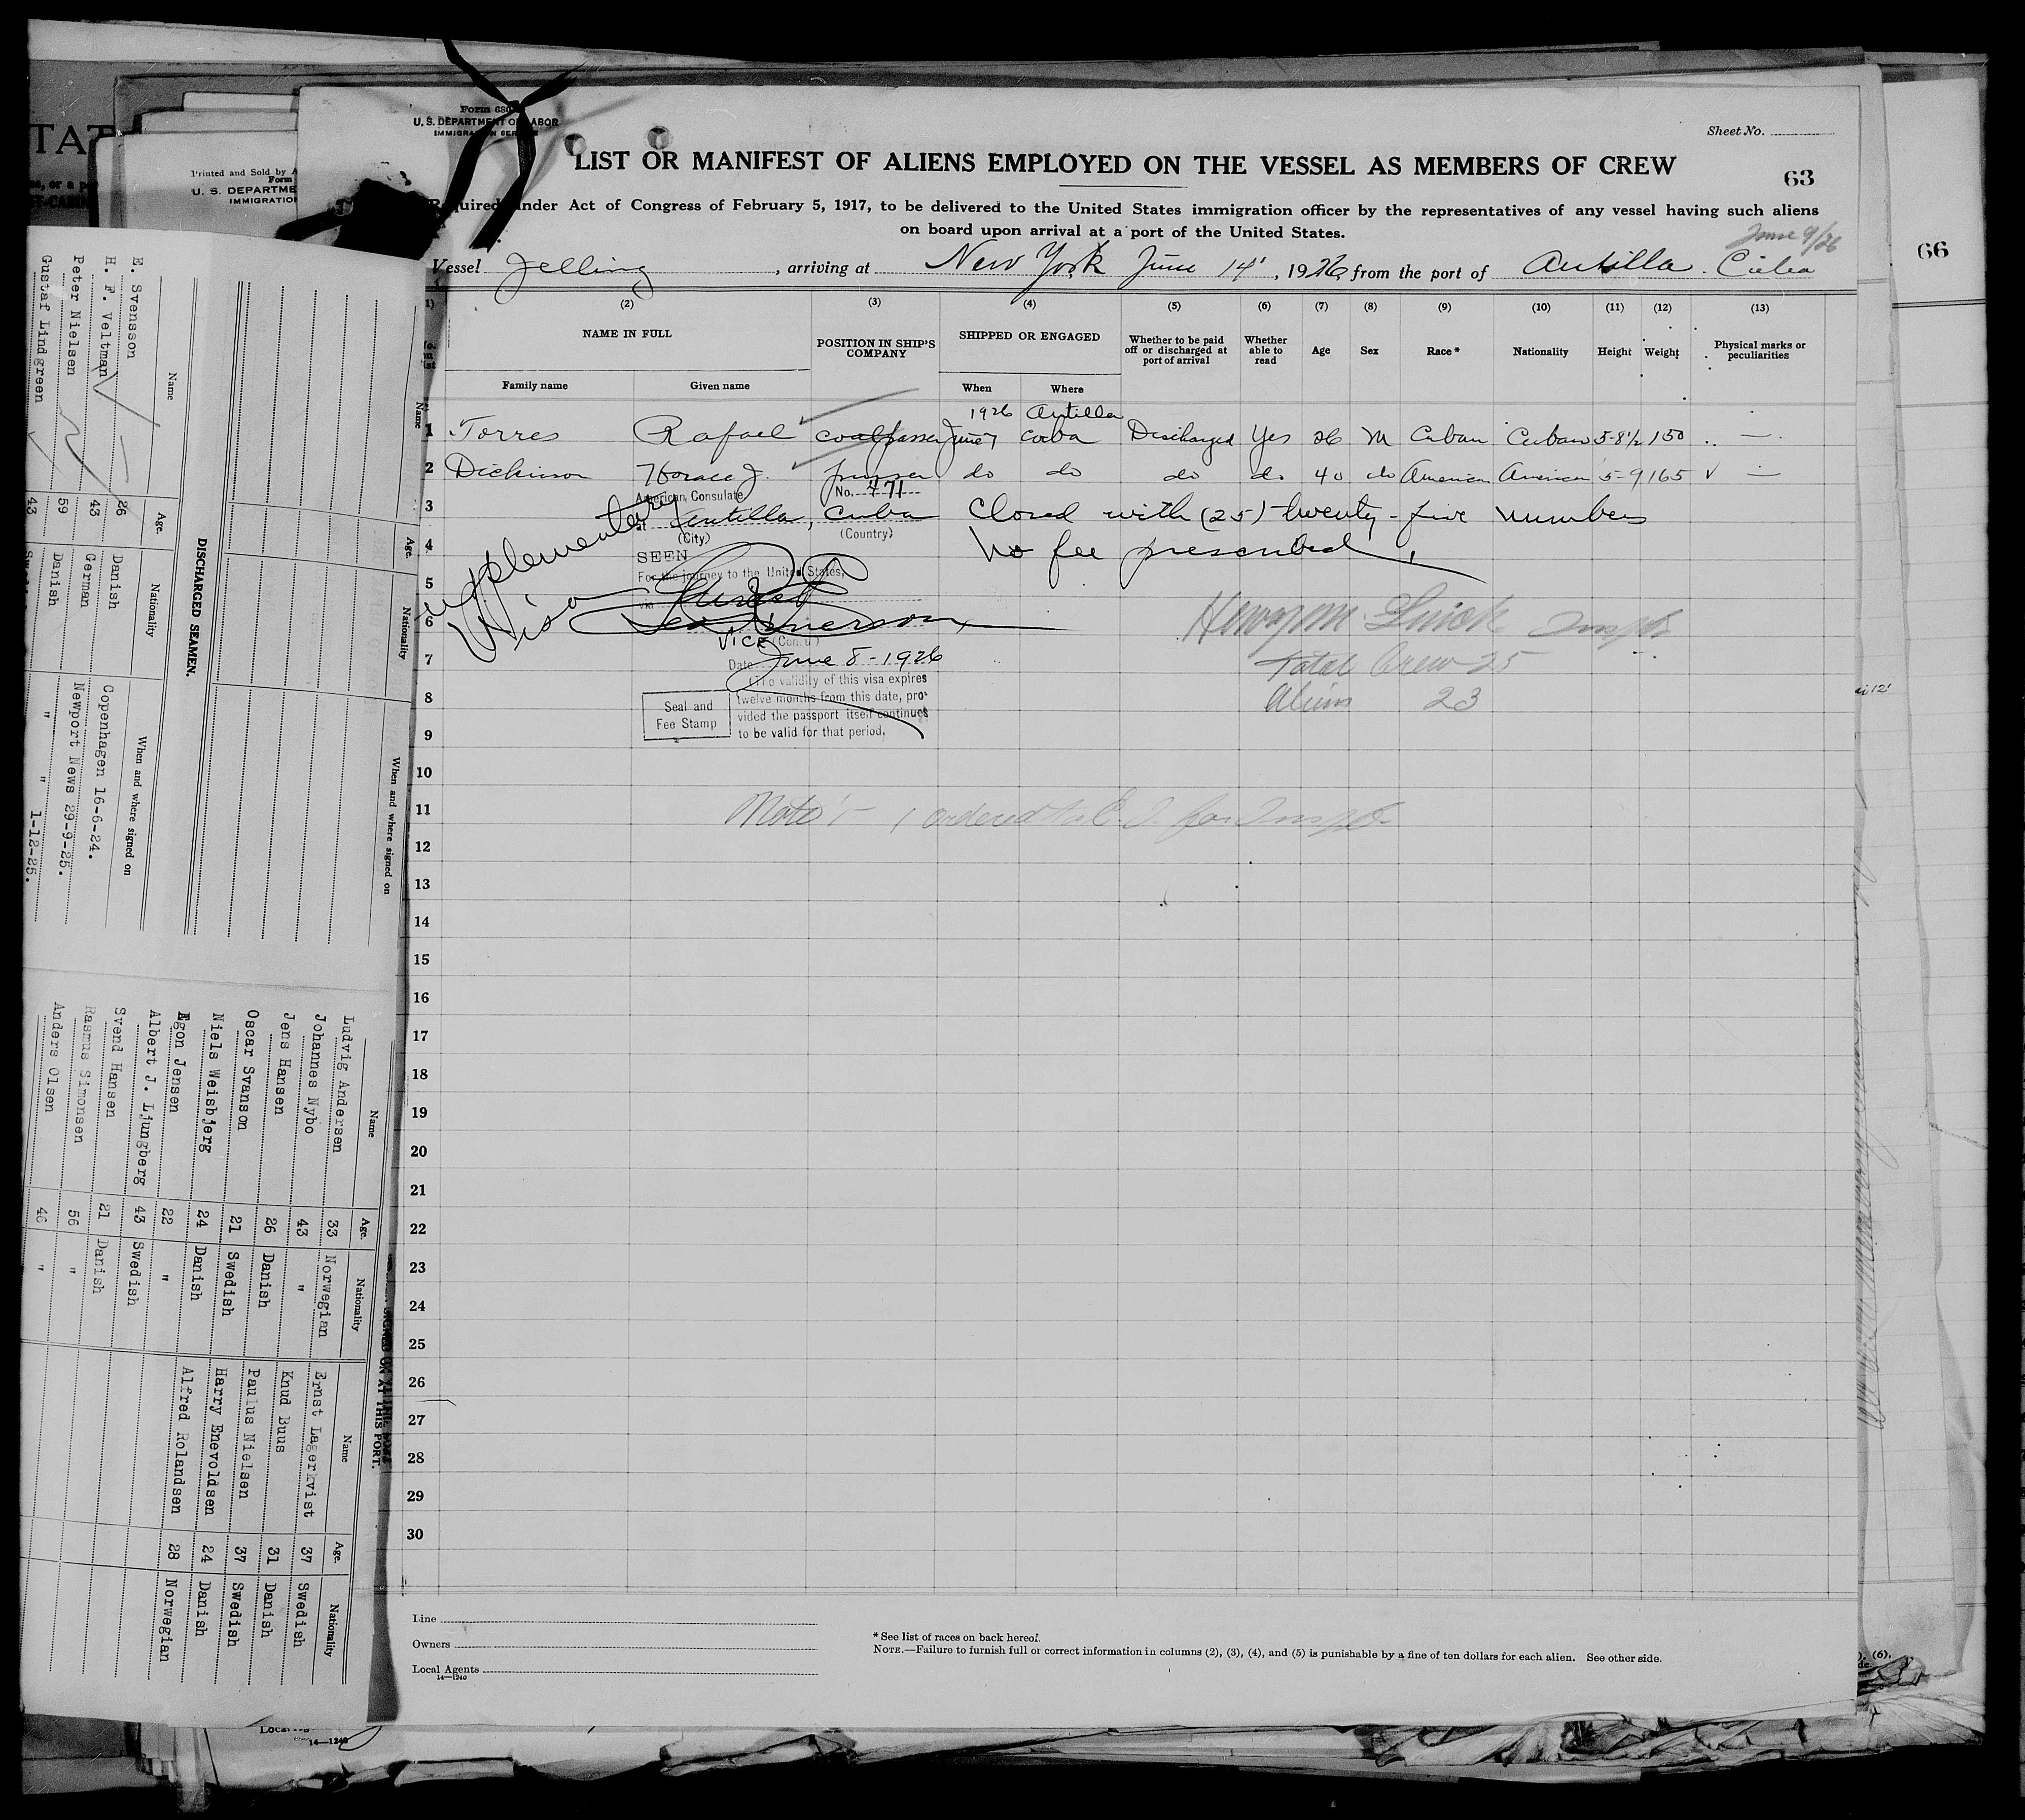 Form 680
U. S. DEPARTMENT OF LABOR
IMMIGRATION SERVICE
Sheet No.
LIST OR MANIFEST OF ALIENS EMPLOYED ON THE VESSEL AS MEMBERS OF CREW
63
Required under Act of Congress of February 5, 1917, to be delivered to the United States immigration officer by the representatives of any vessel having such aliens
on board upon arrival at a port of the United States.
June 9/26
Vessel Jelling, arriving at New York June 14, 1926, from the port of Antilla. Cuba
(1) (2) (3) (4) (5) (6) (7) (8) (9) (10) (11) (12) (13)
NAME IN FULL
Family name
Given name
POSITION IN SHIP'S COMPANY
SHIPPED OR ENGAGED
When
Where
Whether to be paid off or discharged at port of arrival
Whether able to read
Age
Sex
Race*
Nationality
Height
Weight
Physical marks or peculiarities
1926 Antilla
1 Torres Rafael coalpasser June 7 Cuba Discharged Yes 26 M Cuban Cuban 5-8½ 150 —
2 Dickinson Horace J. do do do do 40 do American American 5-9 165 √ —
American Consulate No. 471
3 at Antilla, Cuba Closed with (25) twenty-five numbers
(City) (Country)
4 No fee prescribed.
SEEN
For the journey to the United States,
5
via
Supplementary
Visa
6
VICE (Consul)
7 Date June 8-1926
(The validity of this visa expires
8 twelve months from this date, pro-
vided the passport itself continues
9 to be valid for that period.
Seal and
Fee Stamp
Total Crew 25
Aliens 23
10
11
Note:- 1 ordered to E. I. for Insp.
12
13
14
15
16
17
18
19
20
21
22
23
24
25
26
27
28
29
30
Line
Owners
Local Agents
14—1240
* See list of races on back hereof.
NOTE.—Failure to furnish full or correct information in columns (2), (3), (4), and (5) is punishable by a fine of ten dollars for each alien. See other side.
66
TAT
Printed and Sold by A
Form
U. S. DEPARTME
IMMIGRATIO
DISCHARGED SEAMEN.
Name Age. Nationality When and where signed on
E. Svensson 26 Danish Copenhagen 16-6-24.
H. F. Veltman 43 German Newport News 29-9-25.
Peter Nielsen 59 Danish " " 1-12-25.
Gustaf Lindgreen 43
Name Age. Nationality When and where signed on
SIGNED ON AT THIS PORT.
Name Age. Nationality Name Age. Nationality
Ludvig Andersen 33 Norwegian Ernst Lagerkvist 37 Swedish
Johannes Nybo 43 " Knud Buus 31 Danish
Jens Hansen 26 Danish Paulus Nielsen 37 Swedish
Oscar Svanson 21 Swedish Harry Enevoldsen 24 Danish
Niels Weisbjerg 24 Danish Alfred Rolandsen 28 Norwegian
Egon Jensen 22 "
Albert J. Ljungberg 43 Swedish
Svend Hansen 21 Danish
Rasmus Simonsen 56 "
Anders Olsen 46 "
14—1240